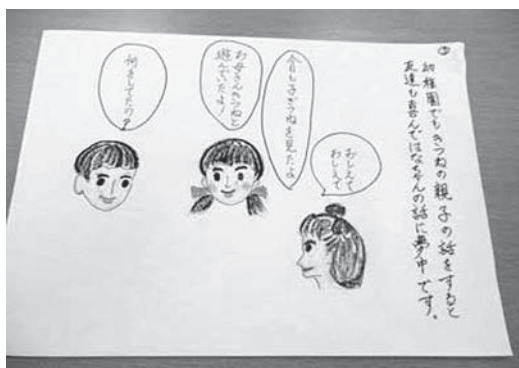 ②
幼稚園でもきつねの親子の話をすると
友達も喜んではなちゃんの話に夢中です。
おしえて
おしえて
今日も子ぎつねを見たよ
お母さんきつねと
遊んでいたよ!
何をしてたの?